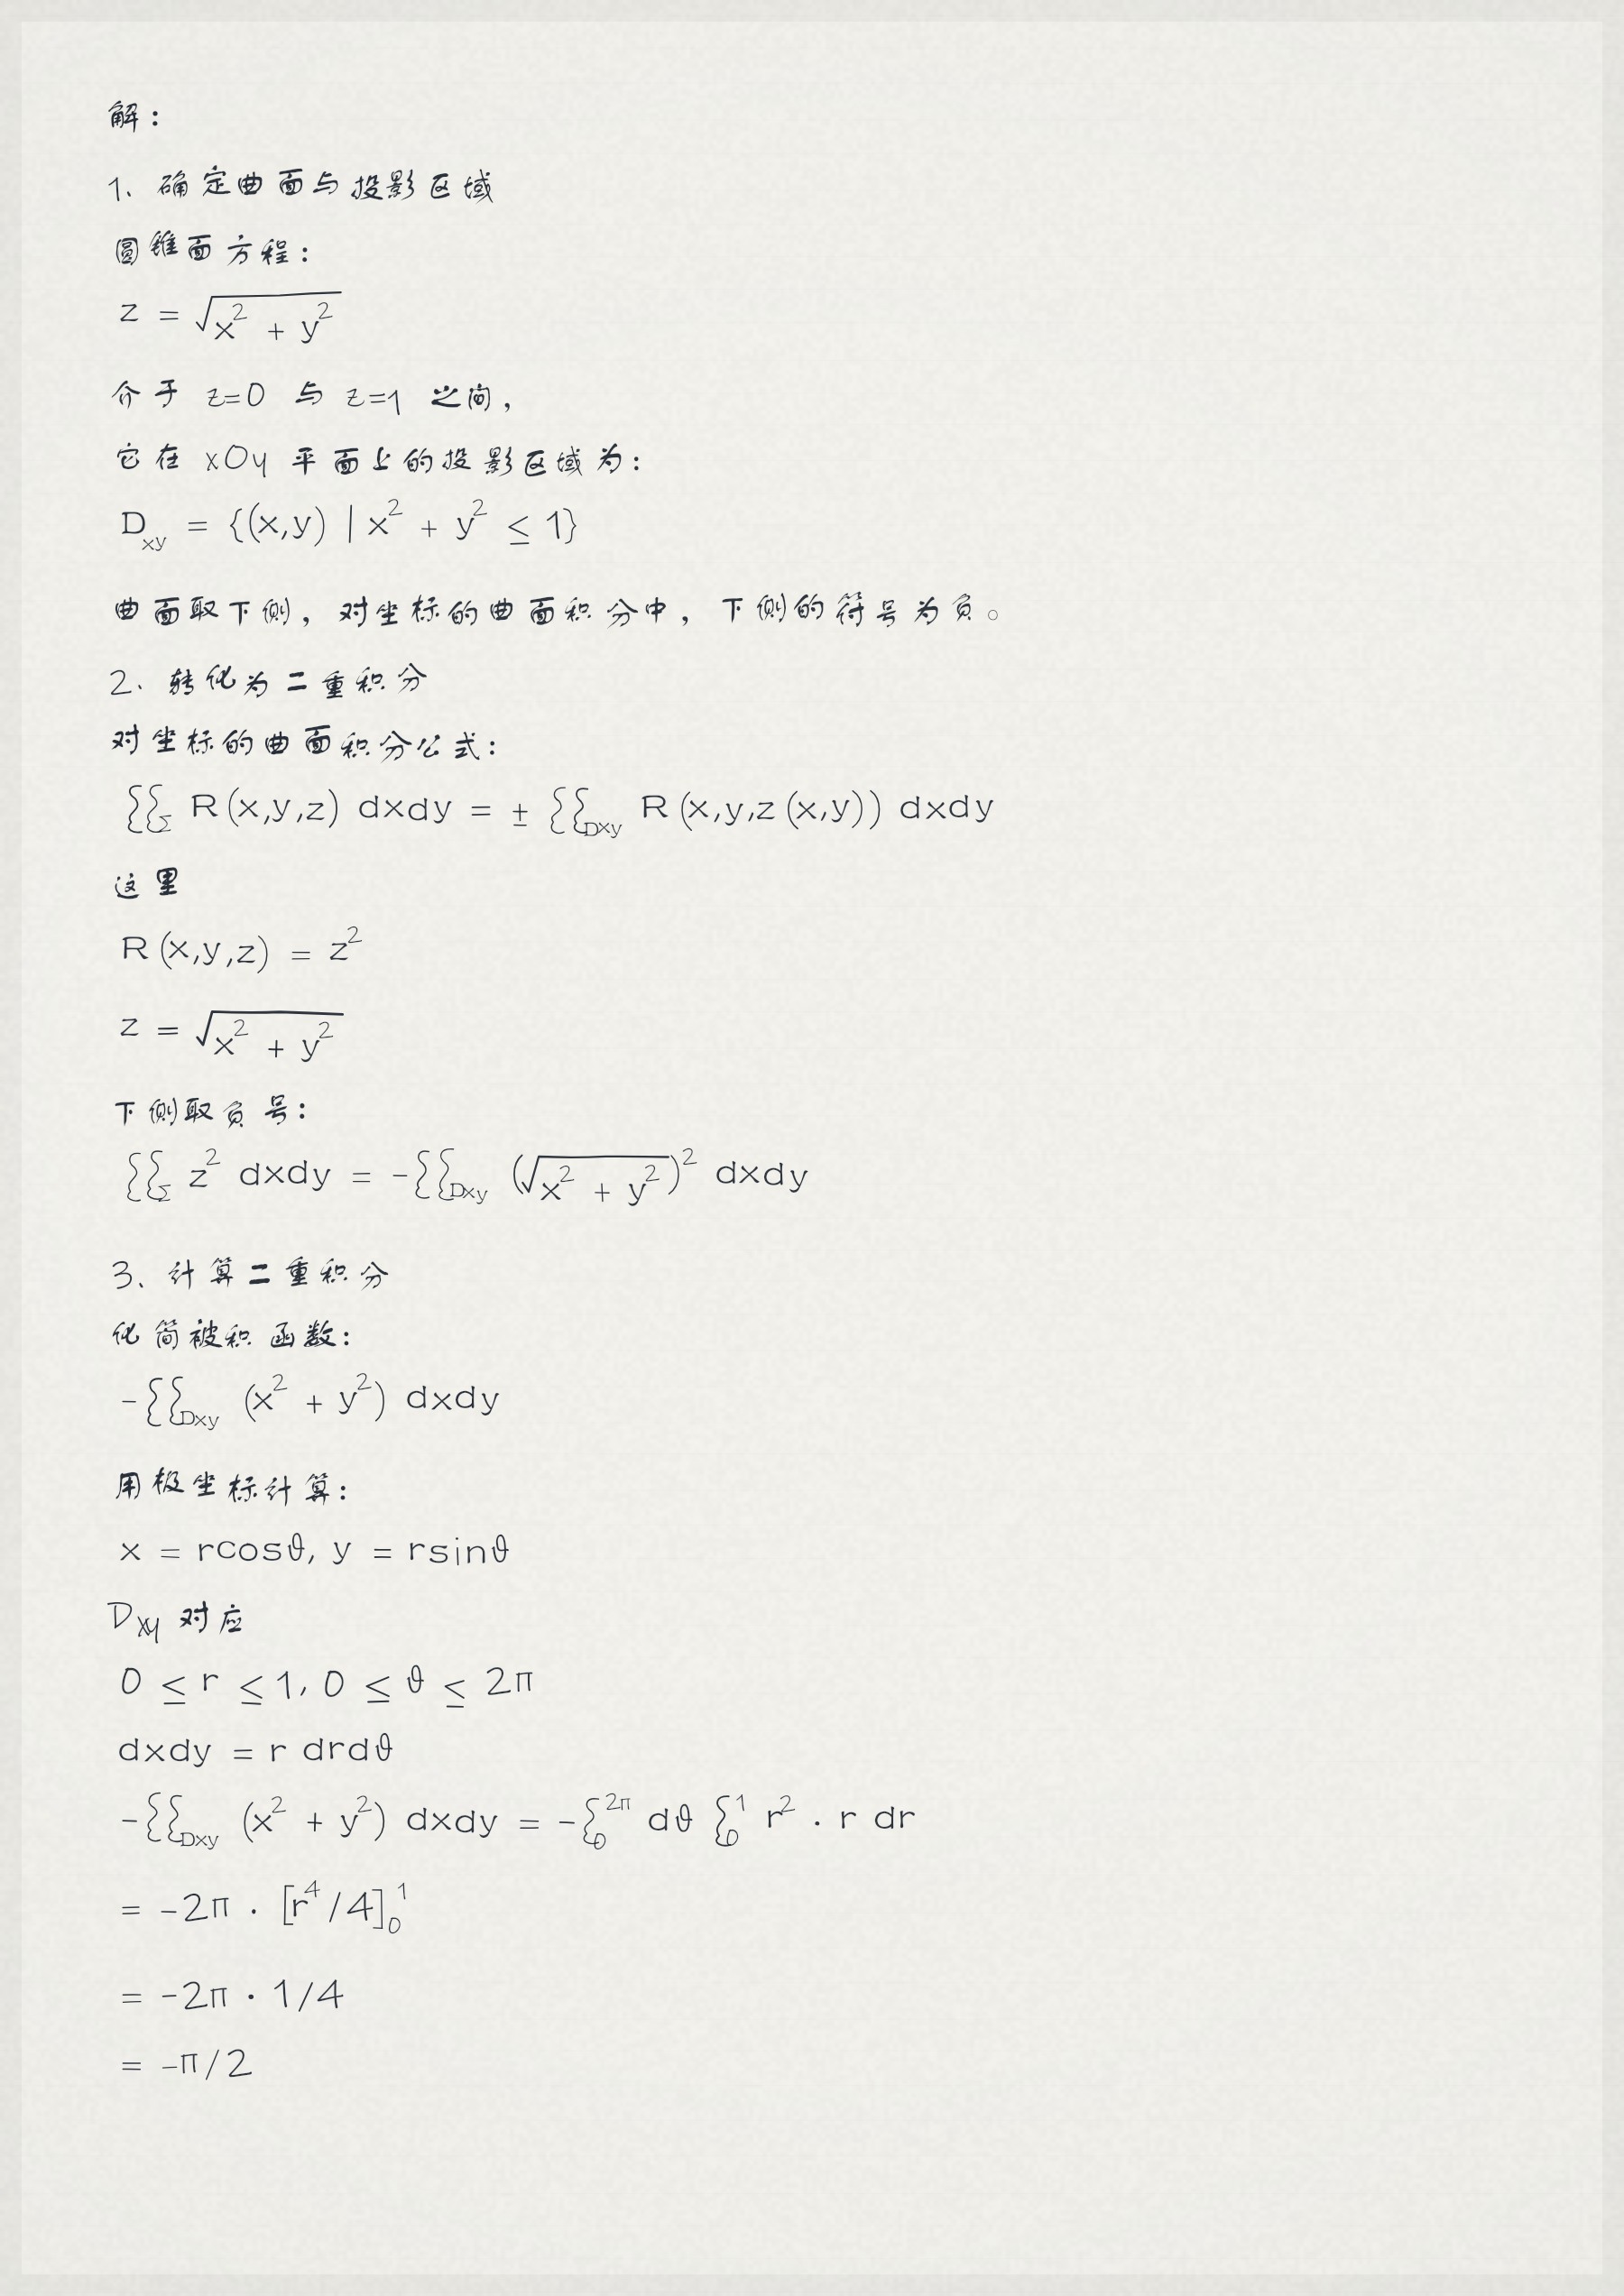 解：
1、确定曲面与投影区域
圆锥面方程：
z = √(x² + y²)
介于 z=0 与 z=1 之间，
它在 xOy 平面上的投影区域为：
D_xy = {(x,y) | x² + y² ≤ 1}
曲面取下侧，对坐标的曲面积分中，下侧的符号为负。
2、转化为二重积分
对坐标的曲面积分公式：
∬_Σ R(x,y,z) dxdy = ± ∬_Dxy R(x,y,z(x,y)) dxdy
这里
R(x,y,z) = z²
z = √(x² + y²)
下侧取负号：
∬_Σ z² dxdy = -∬_Dxy (√(x² + y²))² dxdy
3、计算二重积分
化简被积函数：
-∬_Dxy (x² + y²) dxdy
用极坐标计算：
x = rcosθ, y = rsinθ
D_xy 对应
0 ≤ r ≤ 1, 0 ≤ θ ≤ 2π
dxdy = r drdθ
-∬_Dxy (x² + y²) dxdy = -∫₀^2π dθ ∫₀¹ r² · r dr
= -2π · [r⁴/4]₀¹
= -2π · 1/4
= -π/2